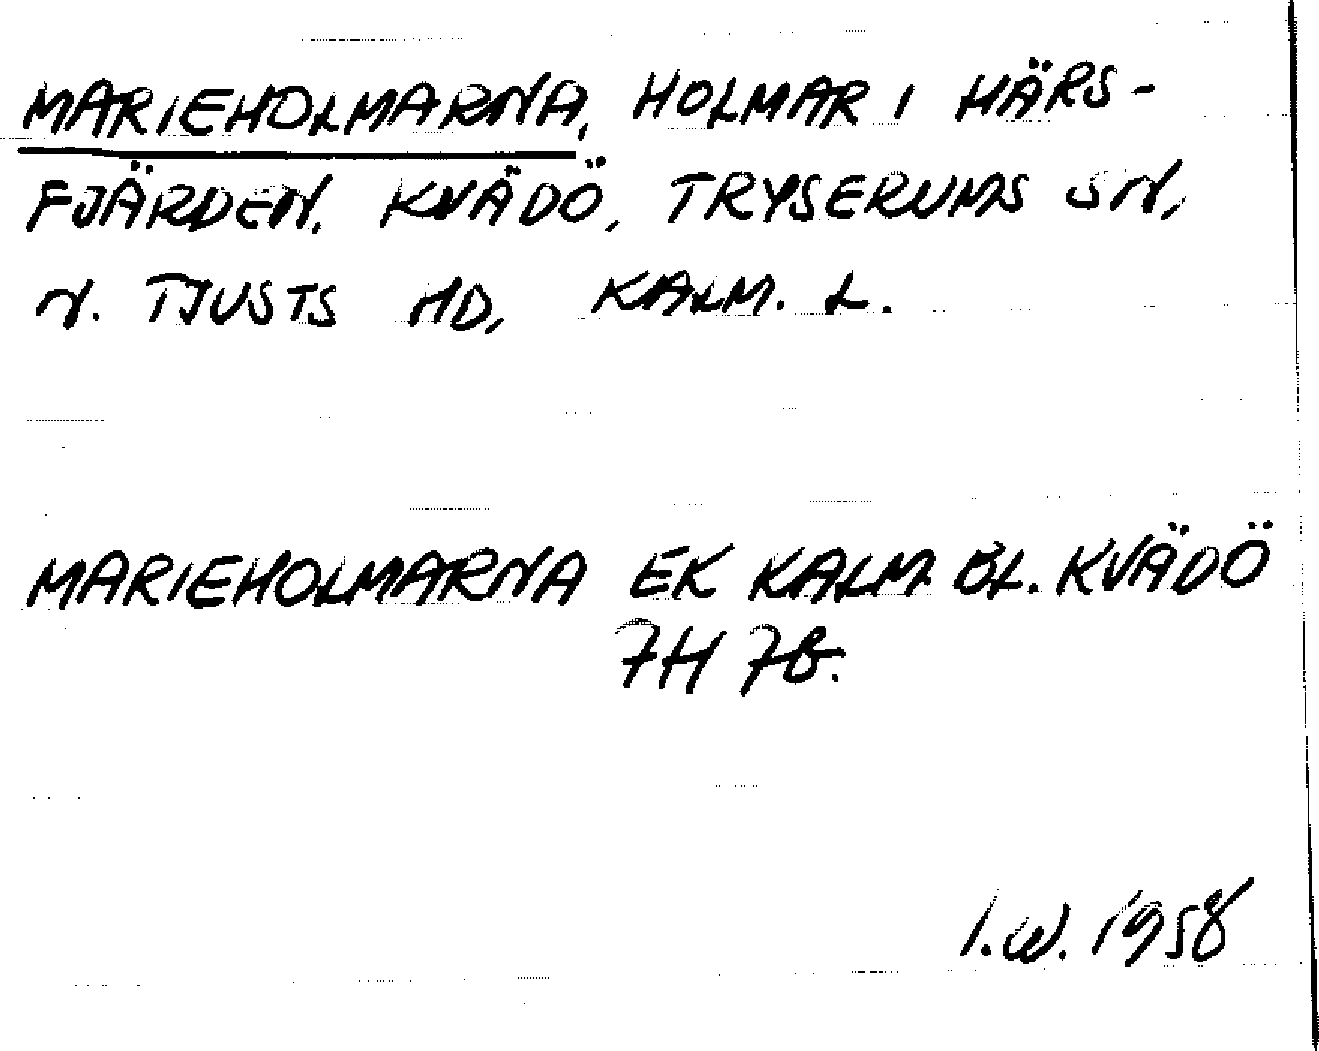 MARIEHOLMARNA, HOLMAR I HÄRS-
FJÄRDEN. KVÄDÖ, TRYSERUMS SN,
N. TJUSTS HD, KALM. L.
MARIEHOLMARNA EK KALM. BL. KVÄDÖ
7H 7B.
I.W. 1958